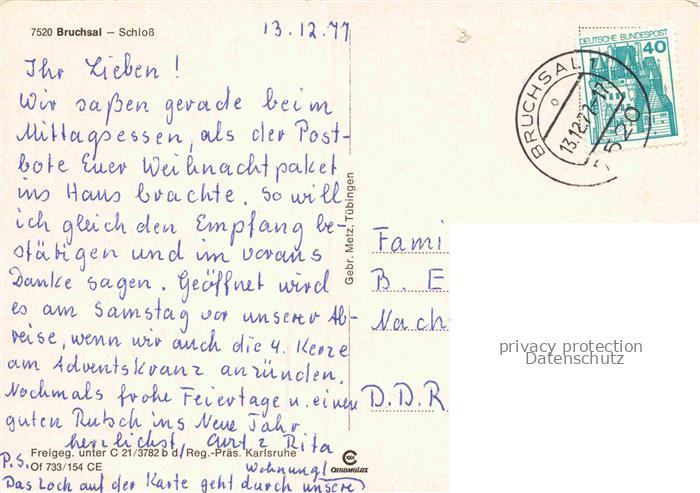 7520 Bruchsal – Schloß
13.12.77
Ihr Lieben!
Wir saßen gerade beim
Mittagsessen, als der Post-
bote Euer Weihnachtpaket
ins Haus brachte. So will
ich gleich den Empfang be-
stätigen und im voraus
Danke sagen. Geöffnet wird
es am Samstag vor unserer Ab-
reise, wenn wir auch die 4. Kerze
am Adventskranz anzünden.
Nochmals frohe Feiertage u. einen
guten Rutsch ins Neue Jahr
herzlichst, Curt & Rita
Freigeg. unter C 21/3782 b d/Reg.-Präs. Karlsruhe
Of 733/154 CE
P.S.
Wohnung!
Das Loch auf der Karte geht durch unsere
CHROMOLUX
Gebr. Metz, Tübingen
DEUTSCHE BUNDESPOST
40
BRUCHSAL 1
13.12.77-17
7520
Fami
B. E
Nach
D.D.R.
privacy protection
Datenschutz